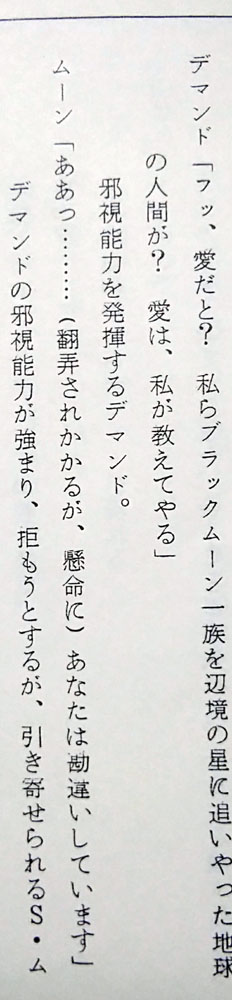 デマンド「フッ、愛だと？　私らブラックムーン一族を辺境の星に追いやった地球
の人間が？　愛は、私が教えてやる」
邪視能力を発揮するデマンド。
ムーン「ああっ………（翻弄されかかるが、懸命に）あなたは勘違いしています」
デマンドの邪視能力が強まり、拒もうとするが、引き寄せられるＳ・ム